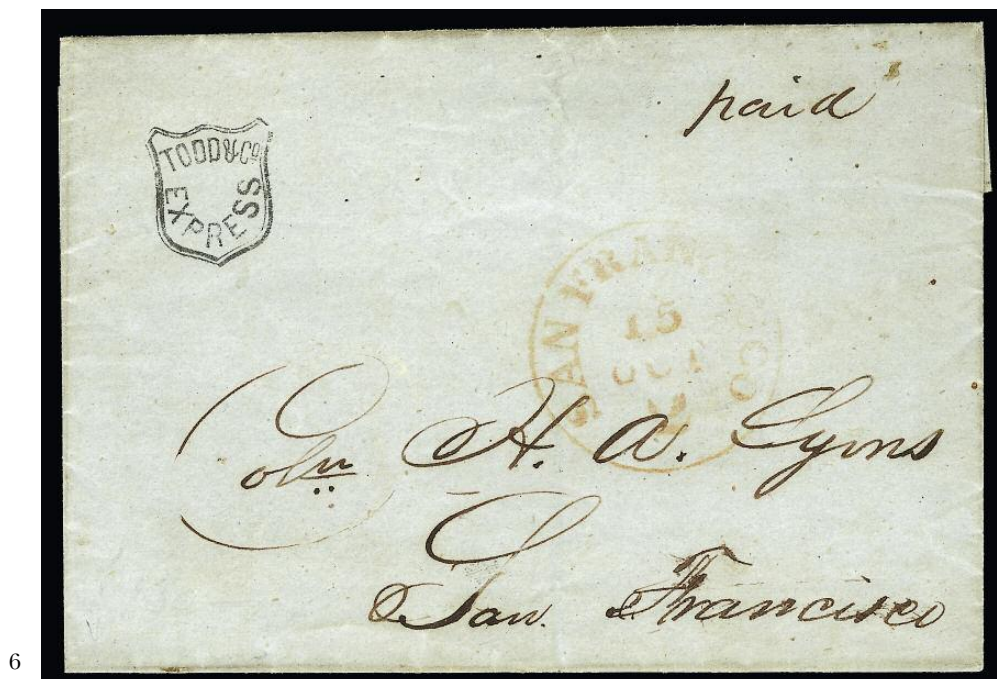 paid
TODD & Co
EXPRESS
SAN FRAN
15
OCT
Coln H. A. Lyons
San Francisco
6